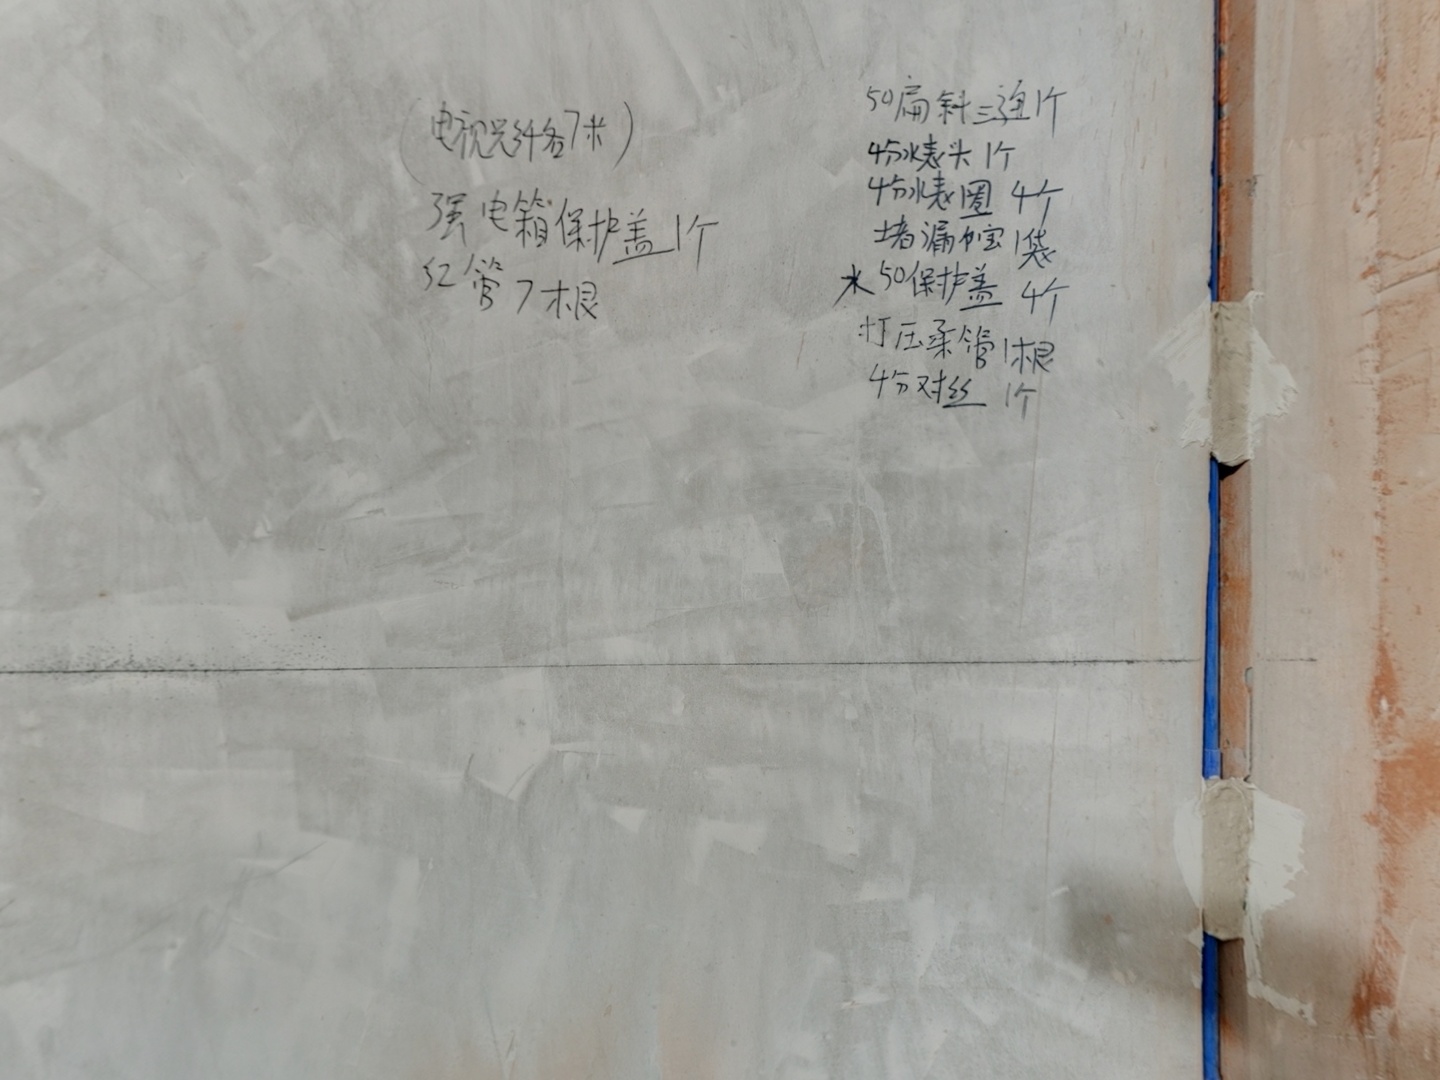 (电视光纤各7米)
强电箱保护盖1个
红管7根
50扁斜三通1个
4分水表头1个
4分水表圈4个
堵漏宝1袋
水50保护盖4个
打压柔管1根
4分对丝1个